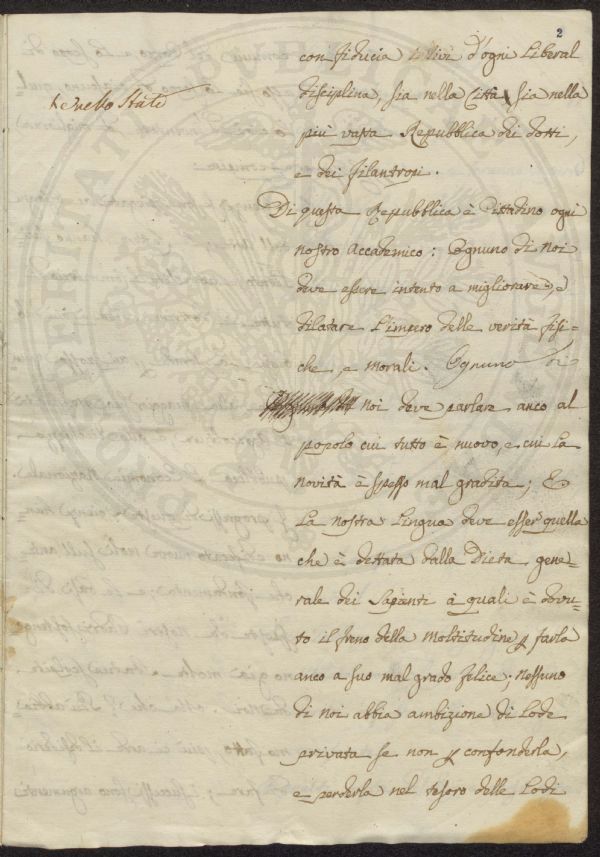 2
con fiducia i Divi d'ogni Liberal
disciplina, sia nella Città, sia nella
più vasta Repubblica dei dotti,
e dei filantropi.
Di questa Repubblica è Cittadino ogni
nostro Accademico: Ognuno di noi
deve essere intento a migliorare, e
dilatare l'impero delle verità fisi-
che, e morali. Ognuno di
noi deve parlare anco al
popolo cui tutto è nuovo, e cui la
novità è spesso mal gradita; E
la nostra Lingua deve esser quella
che è dettata dalla Dieta gene-
rale dei Sapienti à quali è dovu-
to il freno della Moltitudine p farla
anco a suo mal grado felice; nessuno
di noi abbia ambizione di Lode
privata se non p confonderla,
e perderla nel tesoro delle Lodi